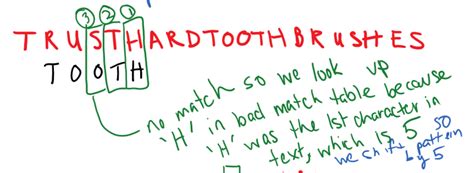 3 2 1
TRUSTHARDTOOTHBRUSHES
TOOTH
no match so we look up
'H' in bad match table because
'H' was the 1st character in
text, which is 5 so
we shift pattern
by 5